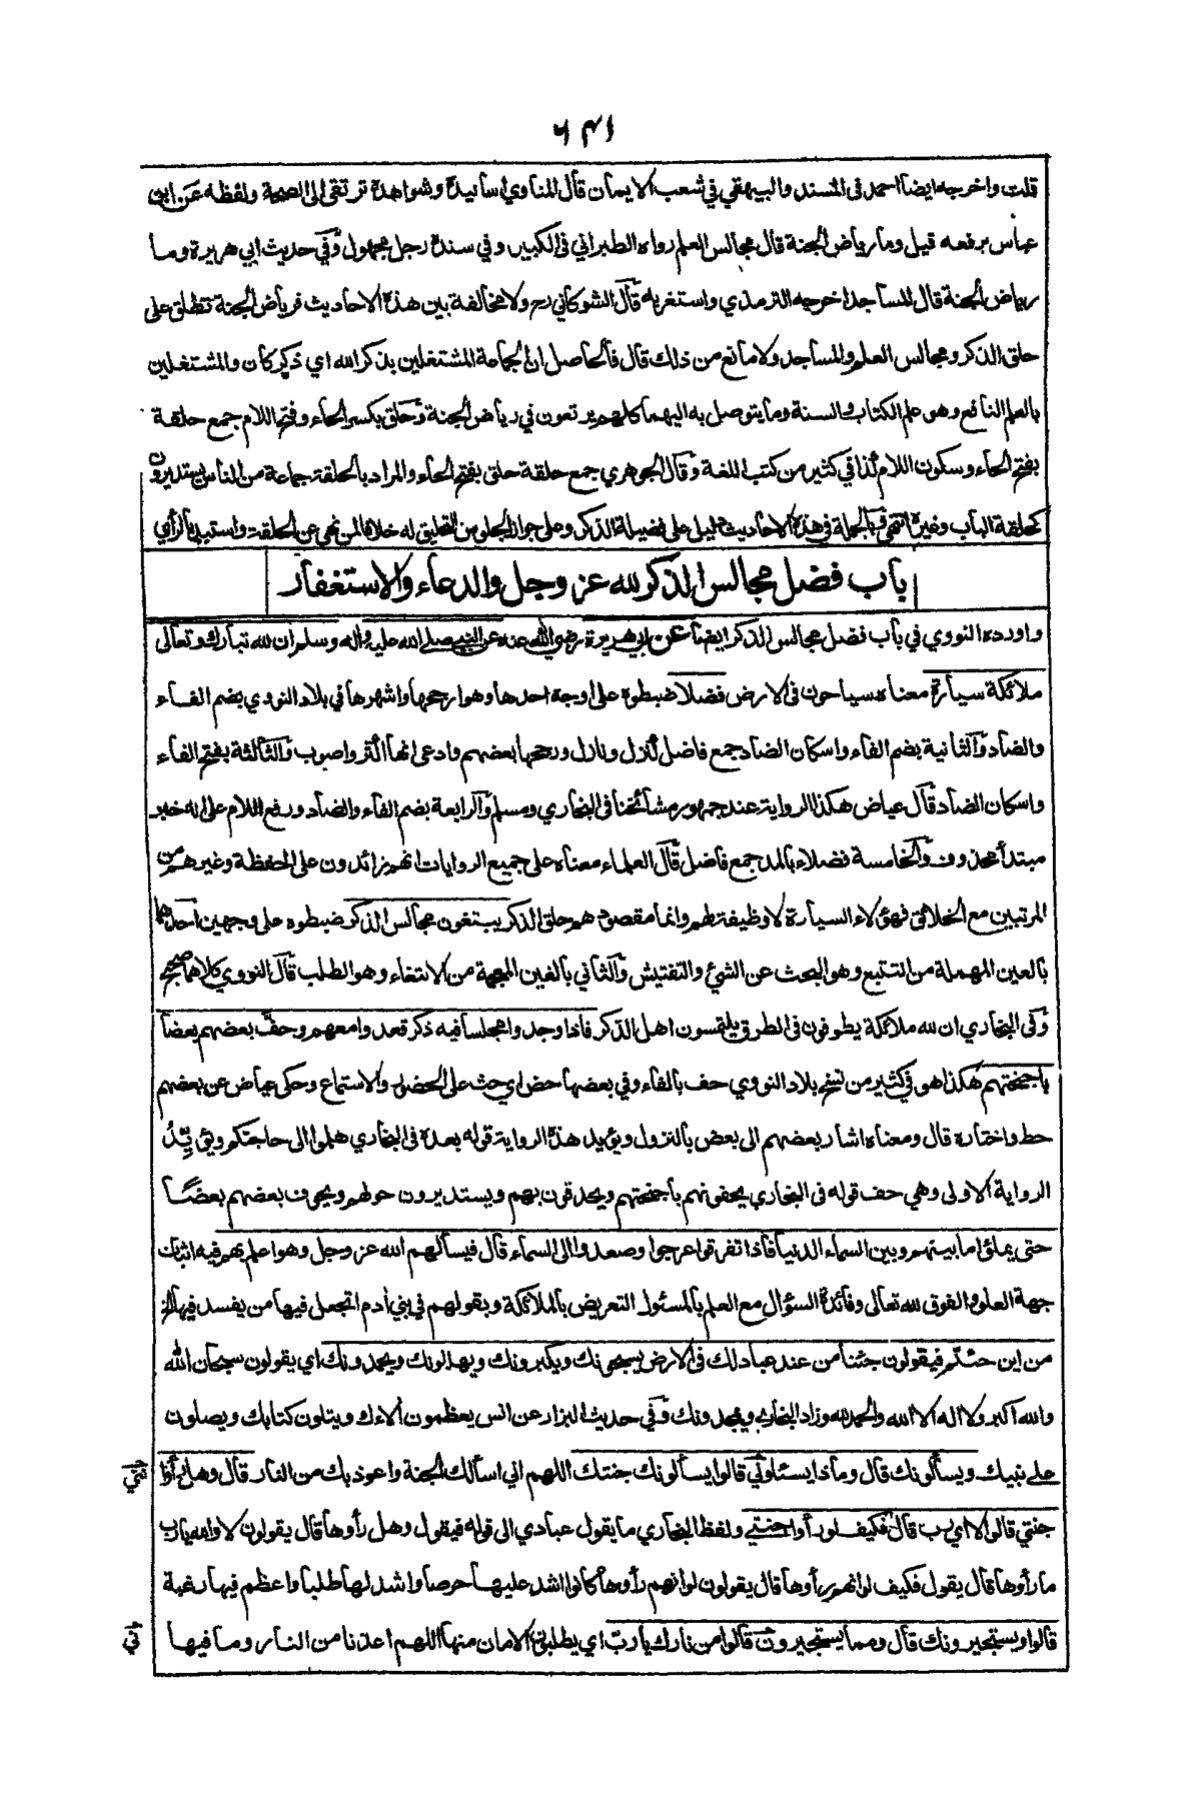 ٦٤١
قلت واخرجه ايضا احمد في المسند والبيهقي في شعب الايمان قال المناوي اسانيده وشواهده ترتقي الى الصحة ولفظه عن ابن
عباس يرفعه قيل وما رياض الجنة قال مجالس العلم رواه الطبراني في الكبير وفي سنده رجل مجهول وفي حديث ابي هريرة وما
رياض الجنة قال المساجد اخرجه الترمذي واستغربه قال الشوكاني رح ولا مخالفة بين هذه الاحاديث فرياض الجنة تطلق على
حلق الذكر ومجالس العلم والمساجد ولا مانع من ذلك قال فالحاصل ان الجماعة المشتغلين بذكر الله اي ذكر كان والمشتغلين
بالعلم النافع وهو علم الكتاب والسنة وما يتوصل به اليهما كلهم يرتعون في رياض الجنة وحلق بكسر الحاء وفتح اللام جمع حلقة
بفتح الحاء وسكون اللام كذا في كثير من كتب اللغة وقال الجوهري جمع حلقة حلق بفتح الحاء والمراد بالحلقة جماعة من الناس يستديرون
كحلقة الباب وغيره انتهى وبالجملة في هذه الاحاديث دليل على فضيلة الذكر وعلى جواز الجلوس التحليق له خلافا لمن نهى عن الحلقة واستبد بالرأي
باب فضل مجالس الذكر لله عز وجل والدعاء والاستغفار
واورده النووي في باب فضل مجالس الذكر ايضا عن ابي هريرة رضي الله عنه عن النبي صلى الله عليه واله وسلم ان لله تبارك وتعالى
ملائكة سيارة معناه سياحون في الارض فضلا ضبطوه على اوجه احدها وهو ارجحها واشهرها في بلاد النووي بضم الفاء
والضاد والثانية بضم الفاء واسكان الضاد جمع فاضل كنزل ونازل ورجحها بعضهم وادعى انها اكثر واصوب والثالثة بفتح الفاء
واسكان الضاد قال عياض هكذا الرواية عند جمهور مشائخنا في البخاري ومسلم والرابعة بضم الفاء والضاد ورفع اللام على انه خبر
مبتدأ محذوف والخامسة فضلاء بالمد جمع فاضل قال العلماء معناه على جميع الروايات انهم زائدون على الحفظة وغيرهم من
المرتبين مع الخلائق فهؤلاء السيارة لا وظيفة لهم وانما مقصودهم حلق الذكر يبتغون مجالس الذكر ضبطوه على وجهين احدهما
بالعين المهملة من التتبع وهو البحث عن الشيء والتفتيش والثاني بالغين المعجمة من الابتغاء وهو الطلب قال النووي كلاهما صحيح
وفي البخاري ان لله ملائكة يطوفون في الطرق يلتمسون اهل الذكر فاذا وجدوا مجلسا فيه ذكر قعدوا معهم وحف بعضهم بعضا
باجنحتهم هكذا هو في كثير من نسخ بلاد النووي حف بالفاء وفي بعضها حض اي حث على الحضور والاستماع وحكى عياض عن بعضهم
حط واختاره قال ومعناه اشار بعضهم الى بعض بالنزول ويؤيد هذه الرواية قوله بعده في البخاري هلموا الى حاجتكم ويؤيد
الرواية الاولى وهي حف قوله في البخاري يحفونهم باجنحتهم ويحدقون بهم ويستديرون حولهم ويحوف بعضهم بعضا
حتى يملؤا ما بينهم وبين السماء الدنيا فاذا تفرقوا عرجوا وصعدوا الى السماء قال فيسألهم الله عز وجل وهو اعلم بهم فيه اثبات
جهة العلو والفوق لله تعالى وفائدة السؤال مع العلم بالمسئول التعريض بالملائكة وبقولهم في بني أدم اتجعل فيها من يفسد فيها الخ
من اين جئتم فيقولون جئنا من عند عباد لك في الارض يسبحونك ويكبرونك ويهللونك ويحمدونك اي يقولون سبحان الله
والله اكبر ولا اله الا الله والحمد لله وزاد البخاري ويمجدونك وفي حديث البزار عن انس يعظمون ألاءك ويتلون كتابك ويصلون
على نبيك ويسألونك قال وماذا يسئلوني قالوا يسألونك جنتك اللهم اني اسألك الجنة واعوذ بك من النار قال وهل رأوا
جنتي
جنتي قالوا لا اي رب قال فكيف لو رأوا جنتي ولفظ البخاري ما يقول عبادي الى قوله فيقول وهل رأوها قال يقولون لا والله يا رب
ما رأوها قال يقول فكيف لو انهم رأوها قال يقولون لو انهم رأوها كانوا اشد عليها حرصا واشد لها طلبا واعظم فيها رغبة
قالوا ويستجيرونك قال ومما يستجيرون قالوا من نارك يا رب اي يطلبون الامان منها اللهم اعذنا من النار وما فيها